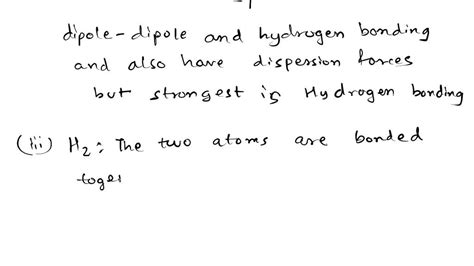 dipole-dipole and hydrogen bonding
and also have dispersion forces
but strongest is Hydrogen bonding
(iii) H2: The two atoms are bonded
toge